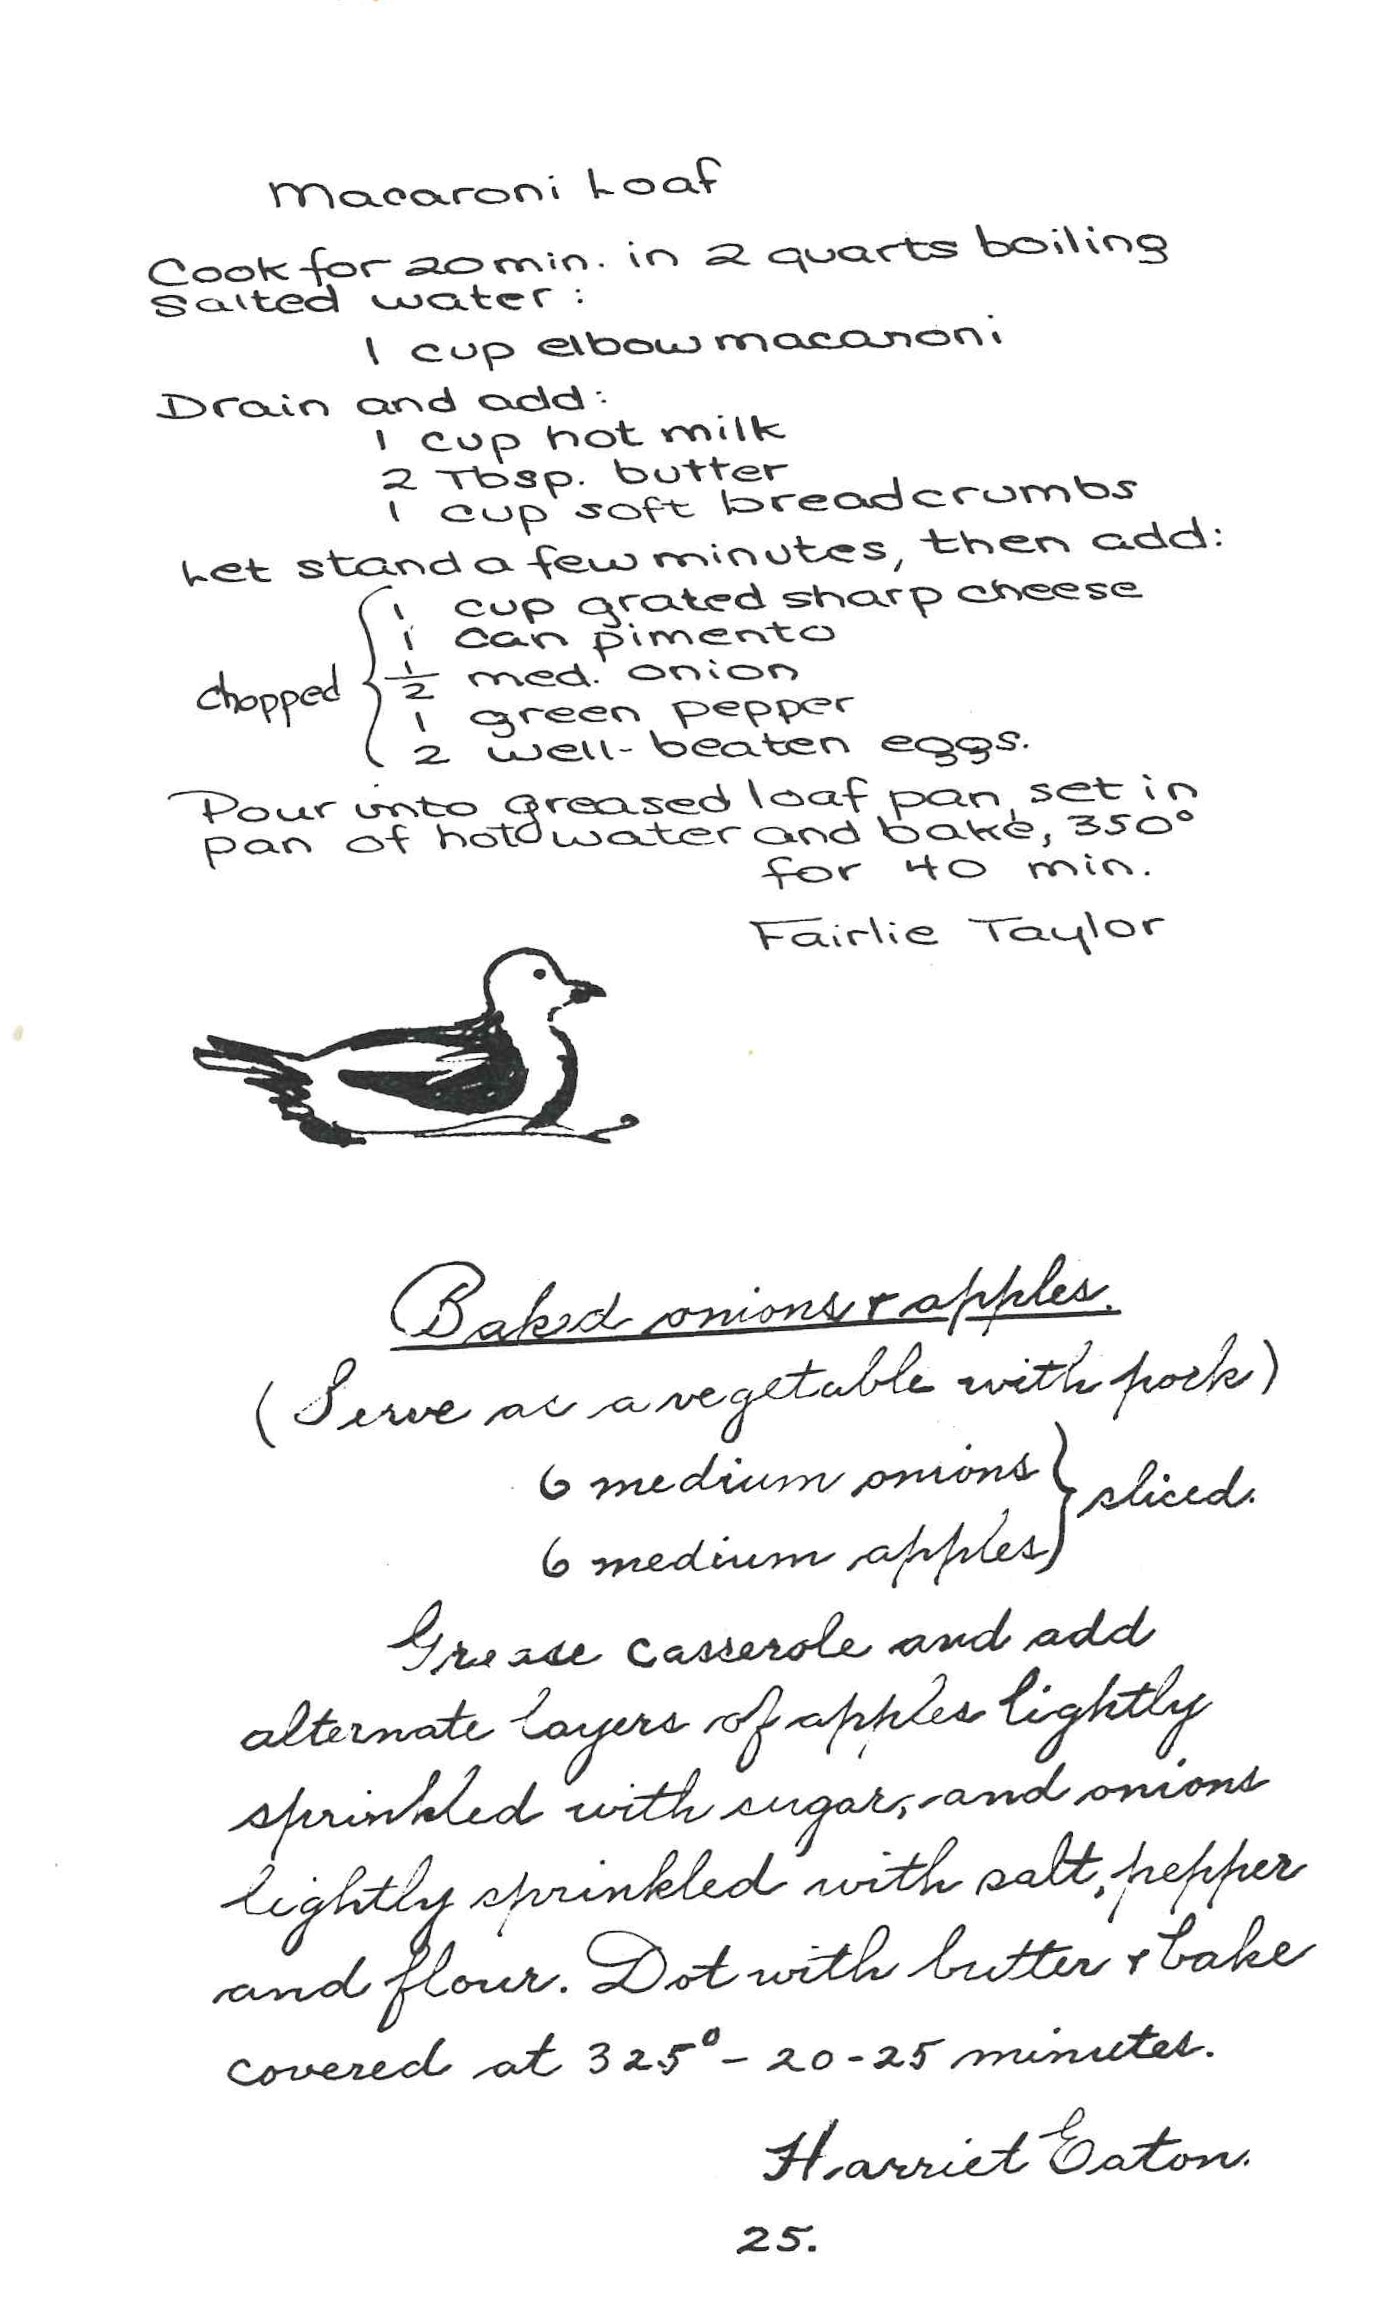 Macaroni Loaf
Cook for 20 min. in 2 quarts boiling
salted water:
1 cup elbow macaroni
Drain and add:
1 cup hot milk
2 Tbsp. butter
1 cup soft breadcrumbs
Let stand a few minutes, then add:
1 cup grated sharp cheese
1 can pimento
chopped { 1/2 med. onion
1 green pepper
2 well-beaten eggs.
Pour into greased loaf pan, set in
pan of hot water and bake, 350°
for 40 min.
Fairlie Taylor
Baked onions & apples.
(Serve as a vegetable with pork)
6 medium onions } sliced.
6 medium apples
Grease casserole and add
alternate layers of apples lightly
sprinkled with sugar, and onions
lightly sprinkled with salt, pepper
and flour. Dot with butter & bake
covered at 325° - 20-25 minutes.
Harriet Eaton.
25.